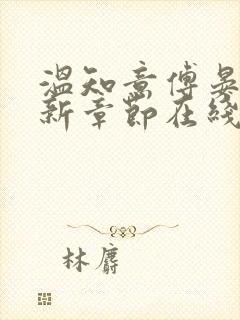 温知意傅晏
新章節在綫
林麝